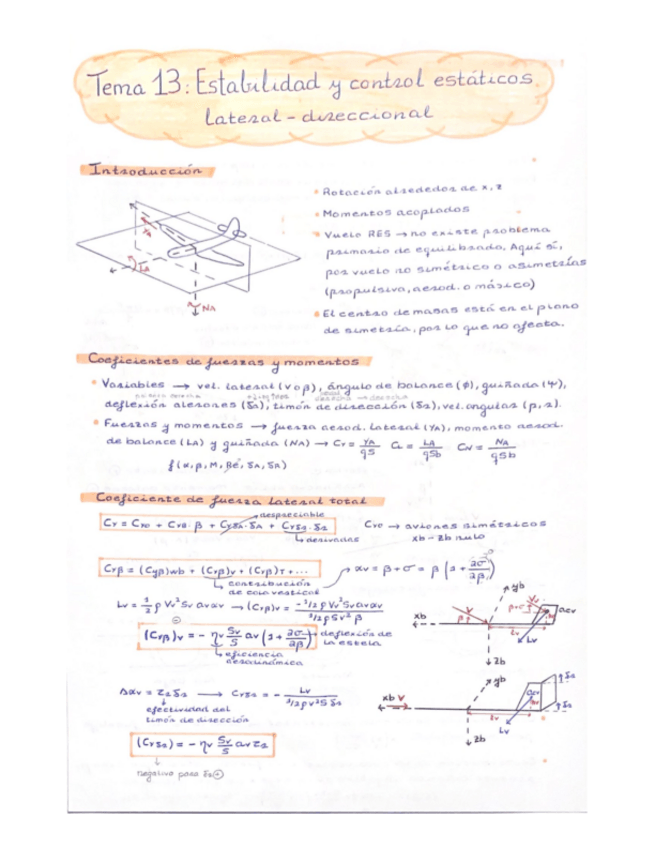 Tema 13: Estabilidad y control estáticos
lateral - direccional
Introducción
• Rotación alrededor de x, z
• Momentos acoplados
• Vuelo RES → no existe problema
primario de equilibrado. Aquí sí,
por vuelo no simétrico o asimetrías
(propulsiva, aerod. o másico)
• El centro de masas está en el plano
de simetría, por lo que no afecta.
YA
LA
NA
Coeficientes de fuerzas y momentos
• Variables → vel. lateral (v o β), ángulo de balance (ϕ), guiñada (ψ),
deflexión alerones (δA), timón de dirección (δr), vel. angular (p, r).
• Fuerzas y momentos → fuerza aerod. lateral (YA), momento aerod.
de balance (LA) y guiñada (NA) → CY = YA/qS CL = LA/qSb CN = NA/qSb
f(α, β, M, Re, δA, δR)
Coeficiente de fuerza lateral total
despreciable
CY = CY0 + CYβ · β + CYδA · δA + CYδr · δr
derivadas
CY0 → aviones simétricos
xb - zb nulo
CYβ = (CYβ)wb + (CYβ)v + (CYβ)T + ...
contribución
de cola vertical
αv = β + σ = β (1 + ∂σ/∂β)
Lv = 1/2 ρ Vv² Sv av αv → (CYβ)v = -1/2 ρ Vv² Sv av αv / 1/2 ρ S V² β
(CYβ)v = - ηv Sv/S av (1 + ∂σ/∂β)
deflexión de
la estela
eficiencia
aerodinámica
Δαv = τr δr → CYδr = - Lv / 1/2 ρ V² S δr
efectividad del
timón de dirección
(CYδr) = - ηv Sv/S av τr
negativo para δr ⊕
xb
yb
zb
V
β
β+σ
acv
lv
Lv
xb V
yb
zb
acv
lv
Lv
δr
δr